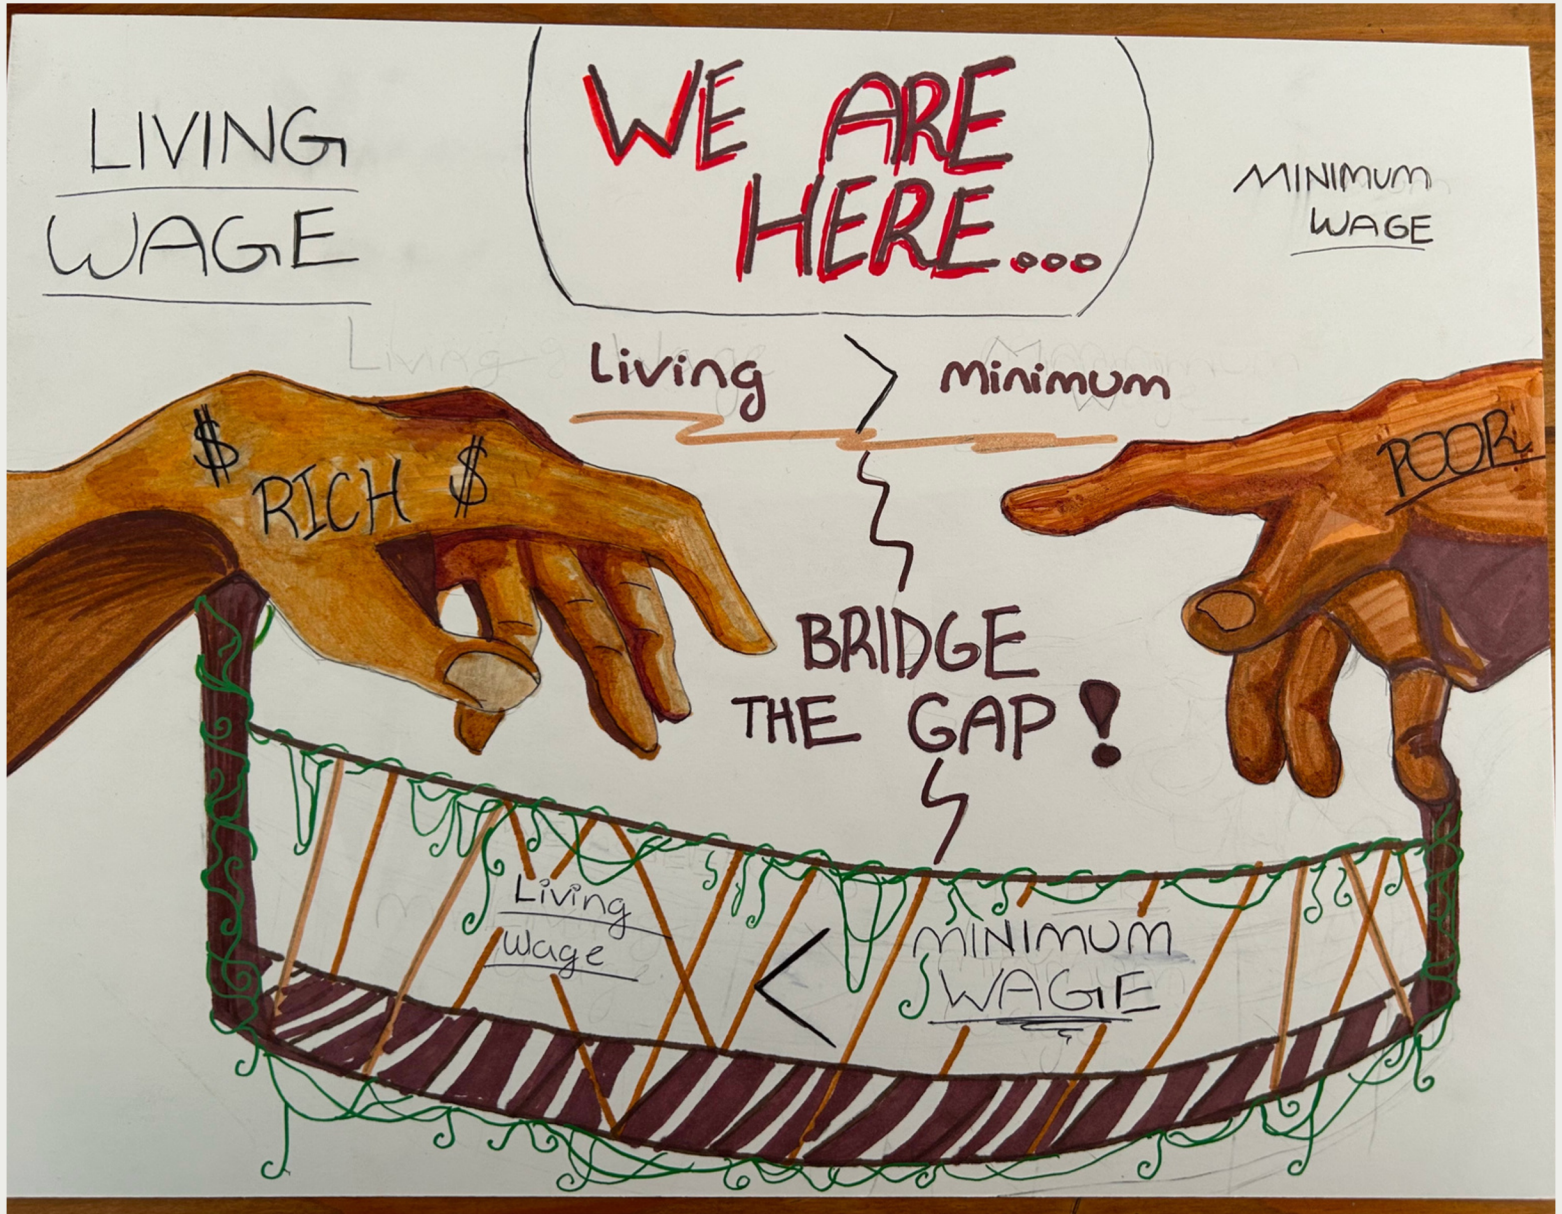 LIVING
WAGE
WE ARE
HERE...
MINIMUM
WAGE
Living > Minimum
$ RICH $
POOR
BRIDGE
THE GAP!
Living
Wage
<
MINIMUM
WAGE